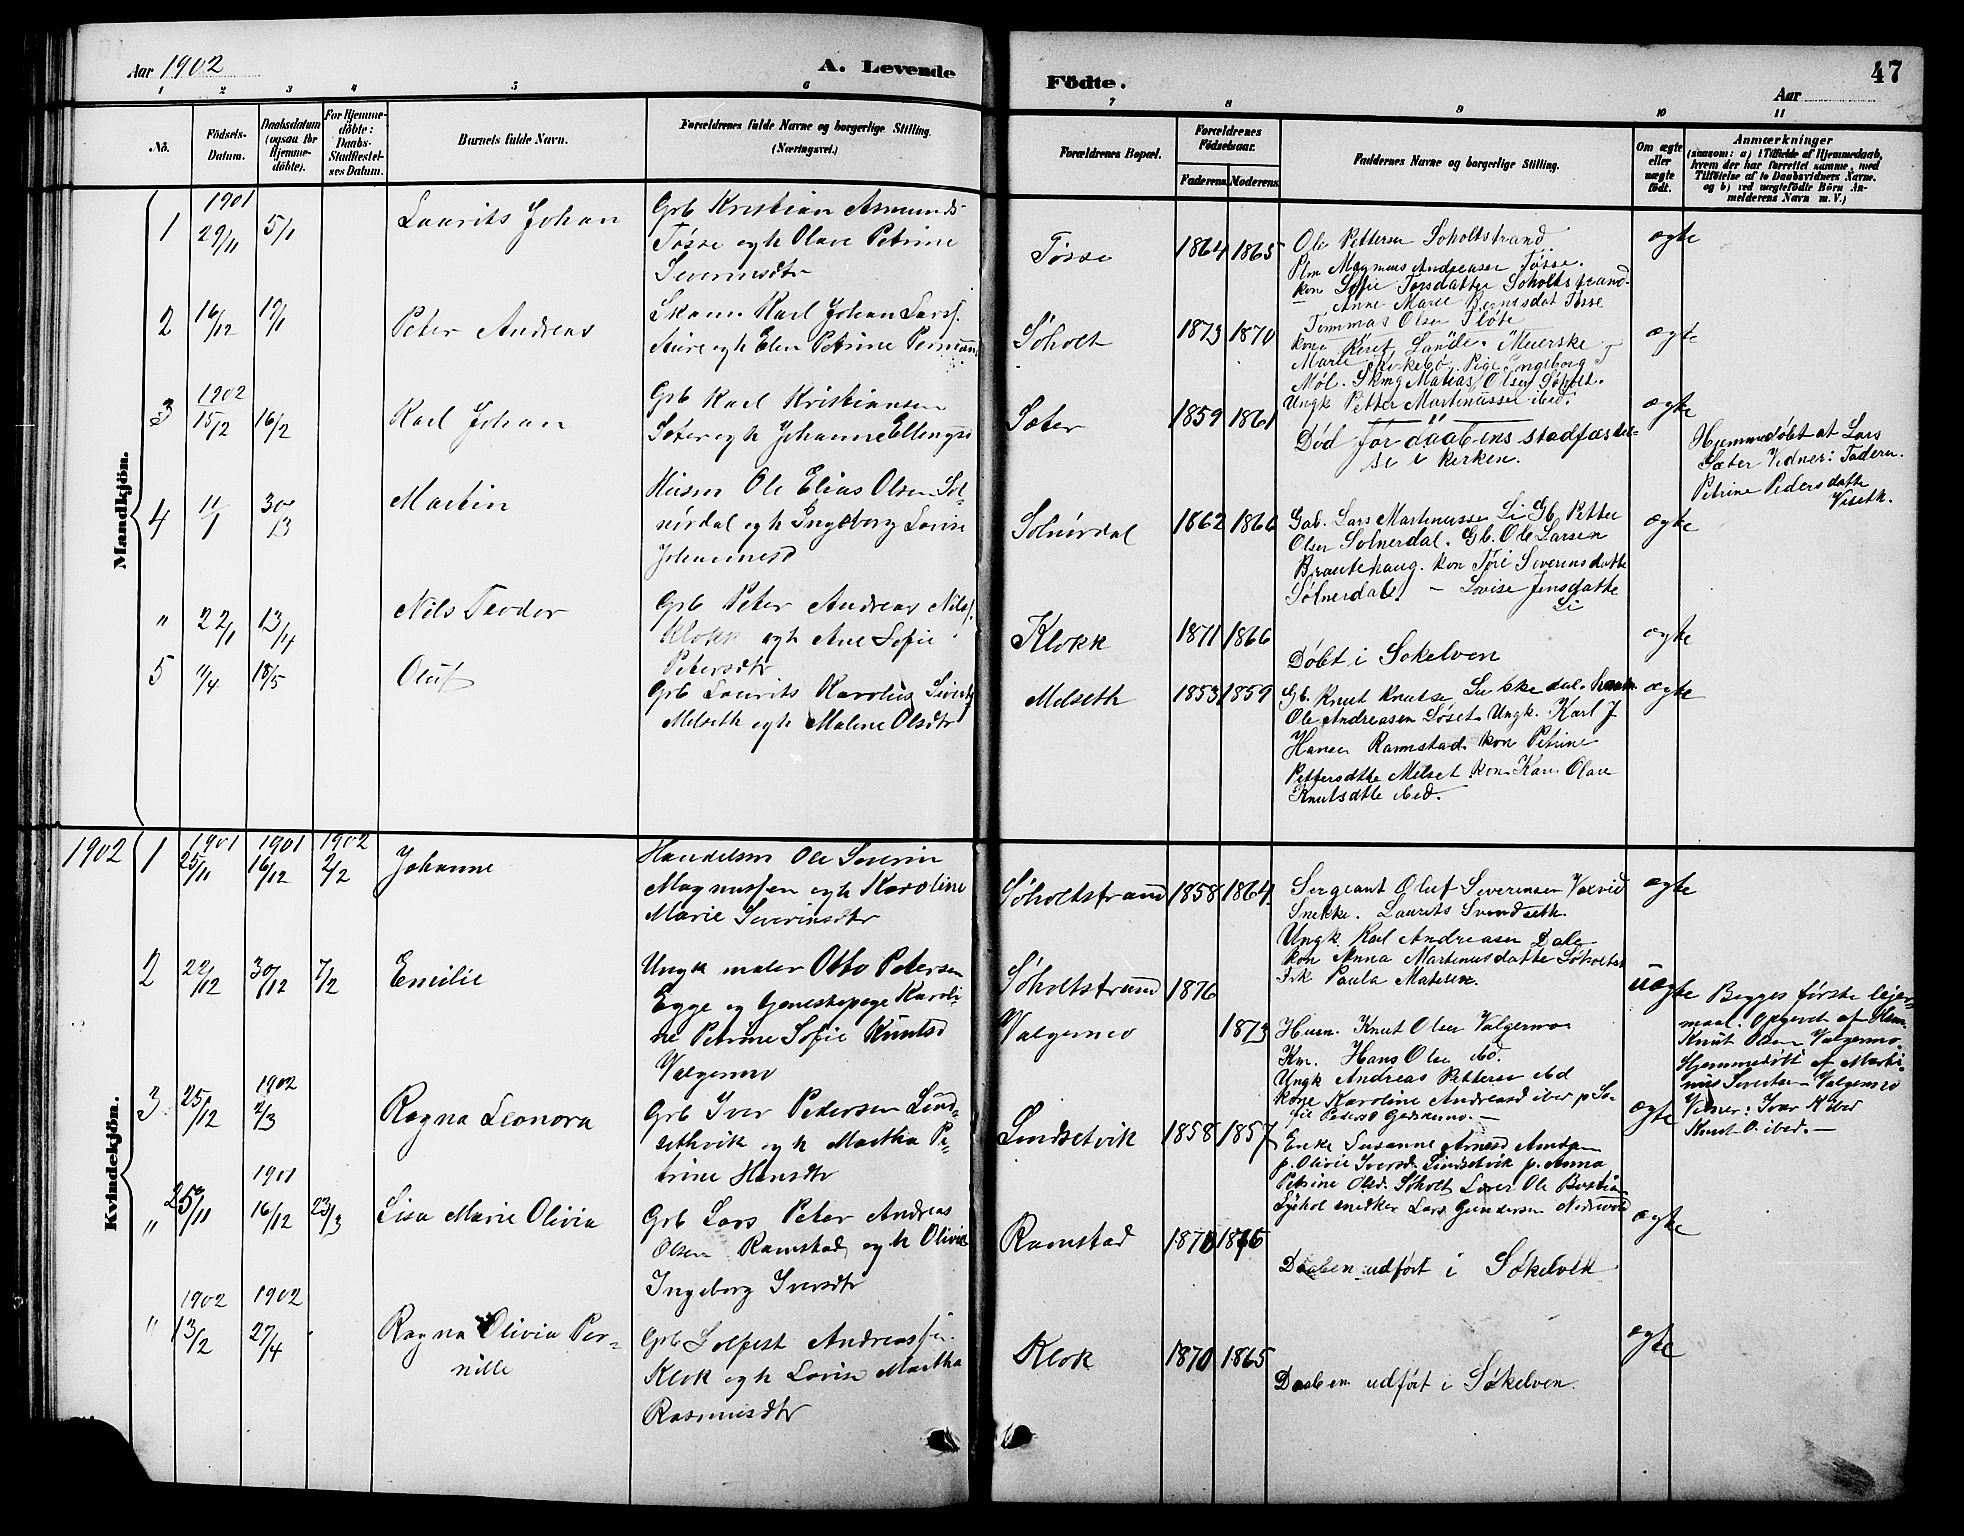 Aar 1902
A. Levende
Födte.
47
Aar
1 2 3 4 5 6 7 8 9 10 11
Nò.
Födsels-
Datum.
Daabsdatum
(ogsaa for
Hjemme-
döbte).
For Hjemme-
döbte:
Daabs-
Stadfæstel-
ses Datum.
Barnets fulde Navn.
Forældrenes fulde Navne og borgerlige Stilling.
(Næringsvei.)
Forældrenes Bopæl.
Forældrenes
Födselsaar.
Faderens. Moderens.
Faddernes Navne og borgerlige Stilling.
Om ægte
eller
uægte
födt.
Anmærkninger
(saasom: a) i Tilfælde af Hjemmedaab,
hvem der har forrettet samme, med
Tilföielse af to Daabsvidners Navne.
og b) ved uægtefödte Börn An-
melderens Navn m. V.)
Mandkjön.
1
1901
29/11
5/1
Laurits Johan
Grb Kristian Asmunds
Tøsse og h Olave Petrine
Severinsdtr
Tøsse
1864 1865
Ole Pettersen Søholtstrand
Plm Magnus Andreasen Tøsse.
kon Sofie Torsdatter Søholtstrand
Anne Marie Tøsse
ægte
2
16/12
19/1
Peter Andreas
Skom Karl Johan Larss.
Aure og h Elen Petrine
Søholt
1873 1870
Tommas Olsen Fløte
kone Lande. Meierske
Marie Kirkebø. Pige Ingeborg
Møl. Matias Olsen Søholt.
Ungk Petter Martinussen ibid.
ægte
3
1902
15/2
16/2
Karl Johan
Grb Karl Kristiansen
Sæter og h Johanne
Sæter
1859 1861
Død før daabens stadfæstel-
se i kirken.
ægte
Hjemmedøbt af Lars
Sæter Vidner: Faderen.
Petrine Pedersdatte
Viseth.
4
11/1
30/3
Martin
Husm Ole Elias Olsen Sol-
nørdal og h Ingeborg Lovise
Johannesd
Solnørdal
1862 1866
Gab. Lars Martinussen Li Gb. Petter
Olsen Solnerdal. Gb. Ole Larsen
Brautehaug. kon Tøri Severensdatte
Sølnerdal - Lovise Jensdatte
Li
ægte
"
22/1
13/4
Nils Teodor
Grb Peter Andreas Nilss.
Klokk og h Ane Sofie
Petersdtr
Klokk
1871 1866
Døbt i Søkelven
ægte
5
/4
18/5
Oluf
Grb Laurits Karolius Siverts
Melseth og h Maline Olsdtr
Melseth
1853 1859
Gb. Knut Knutsen
Ole Andreasen Søset. Ungk. Karl J
Hansen Ramstad. kon Petrine
Pettersdtte Melset kon. Olave
Knutsdtte ibid.
ægte
Kvindekjön.
1902 1
1901
25/11
1901
16/12
1902
2/2
Johanne
Handelsm Ole Severin
Magnussen og h Karoline
Marie Severinsdtr
Søholtstrand
1858 1864
Sergeant Oluf Severensen Vaxvid
Snekke. Laurits Svendseth.
Ungk. Karl Andreasen Dale
kon Anna Martinusdatte Søholtst
Frk Paula Matesen.
ægte
2
22/12
30/12
7/2
Emilie
Ungk maler Otto Petersen
Egge og Karoli-
ne Petrine Sofie Knutsd
Valgermo
Søholtstrand
Valgermo
1876
1873
Husm. Knut Olsen Valgermo
Km. Hans Olsen ibd.
Ungk Andreas Pettersen ibd
kone Karoline Andreasd ibid p So-
fie Pedersd
uægte
Begges første lejer-
maal. Opgivet af Hsm.
Knut Olsen Valgermo.
Hjemmedøbt af Marti-
nus Sivertsen Valgermo
Vidner: Ivar K ibid
Knut O. ibed. -
3
25/12
1902
2/3
Ragna Leonora
Grb Iver Pedersen Lind-
sethvik og h Martha Pe-
trine Hansdtr
Lindsetvik
1858 1857
Enke Susanne Arnesd
p. Olivie Iversd. Lindsetvik p. Anna
Petrine Olsd. Søholt Ole
snedker Lars Gundersen
ægte
"
25/11
1901
16/12
23/3
Lisa Marie Olivia
Grb Lars Peter Andreas
Olsen Ramstad og h Olivie
Ingeborg Iversdtr
Ramstad
1870
Daaben udført i Søkelven
ægte
"
1902
13/2
1902
27/4
Ragna Olivia Per-
nille
Grb Andreassen
Klok og h Lovise Martha
Rasmusdtr
Klok
1870 1865
Daaben udført i Søkelven.
ægte